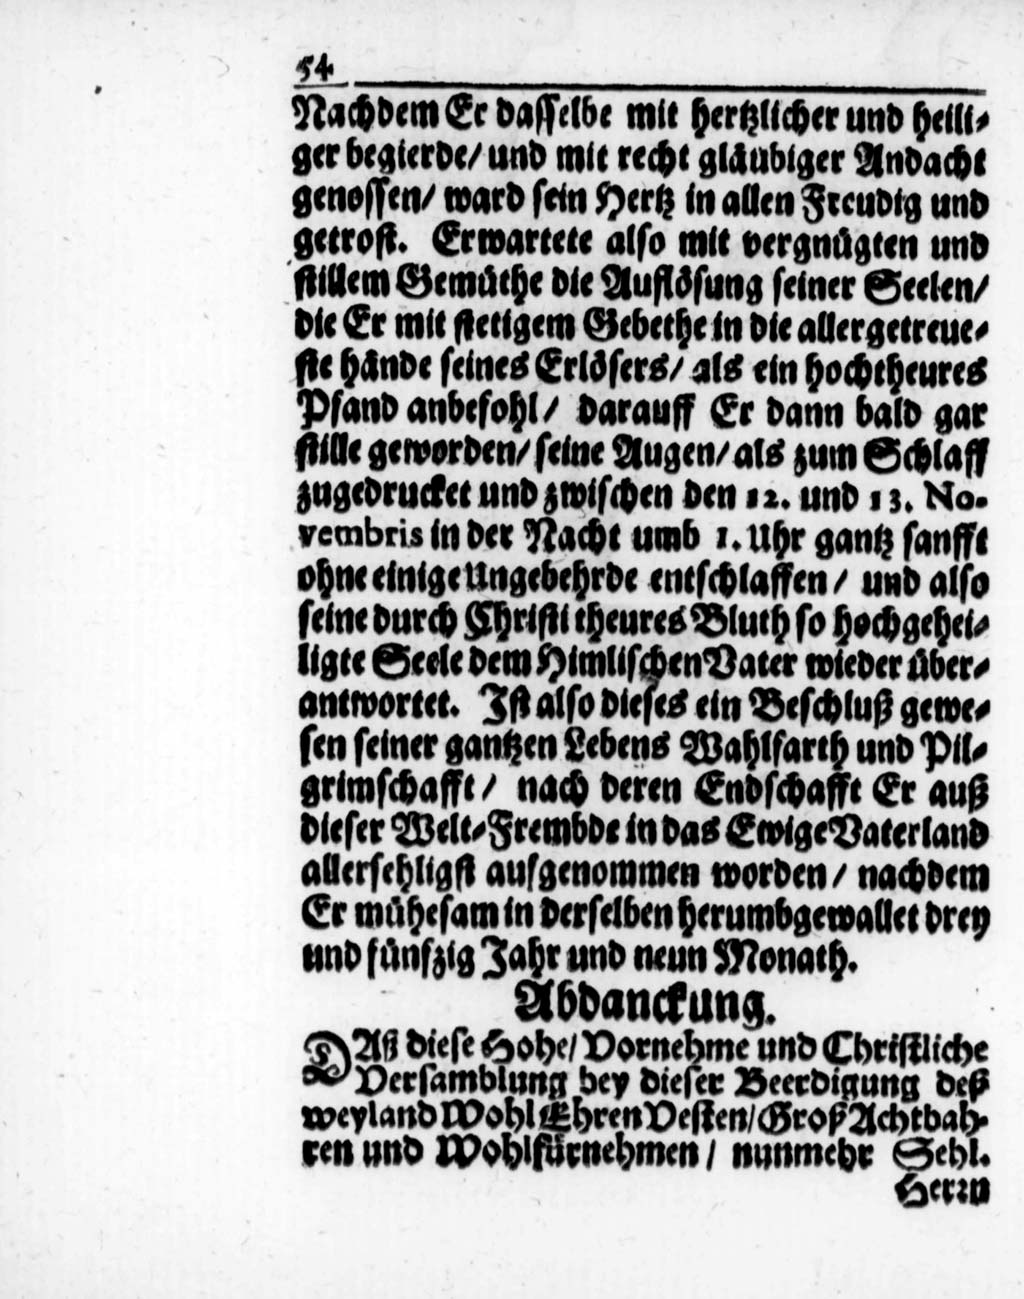 54
Nachdem Er dasselbe mit hertzlicher und heili-
ger begierde/ und mit recht gläubiger Andacht
genossen/ ward sein Hertz in allen Freudig und
getrost. Erwartete also mit vergnügten und
stillem Gemüthe die Auflösung seiner Seelen/
die Er mit stetigem Gebethe in die allergetreue-
ste hände seines Erlösers/ als ein hochtheures
Pfand anbefohl/ darauff Er dann bald gar
stille geworden/ seine Augen/ als zum Schlaff
zugedrucket und zwischen den 12. und 13. No-
vembris in der Nacht umb 1. Uhr gantz sanfft
ohne einige Ungebehrde entschlaffen/ und also
seine durch Christi theures Bluth so hochgehei-
ligte Seele dem Himlischen Vater wieder über-
antwortet. Ist also dieses ein Beschluß gewe-
sen seiner gantzen Lebens Wahlfarth und Pil-
grimschafft/ nach deren Endschafft Er auß
dieser Welt-Frembde in das Ewige Vaterland
allersehligst aufgenommen worden/ nachdem
Er mühesam in derselben herumbgewallet drey
und fünfzig Jahr und neun Monath.
Abdanckung.
DAß diese Hohe/ Vornehme und Christliche
Versamblung bey dieser Beerdigung deß
weyland WohlEhrenVesten/ GroßAchtbah-
ren und Wohlfürnehmen/ nunmehr Sehl.
Herrn